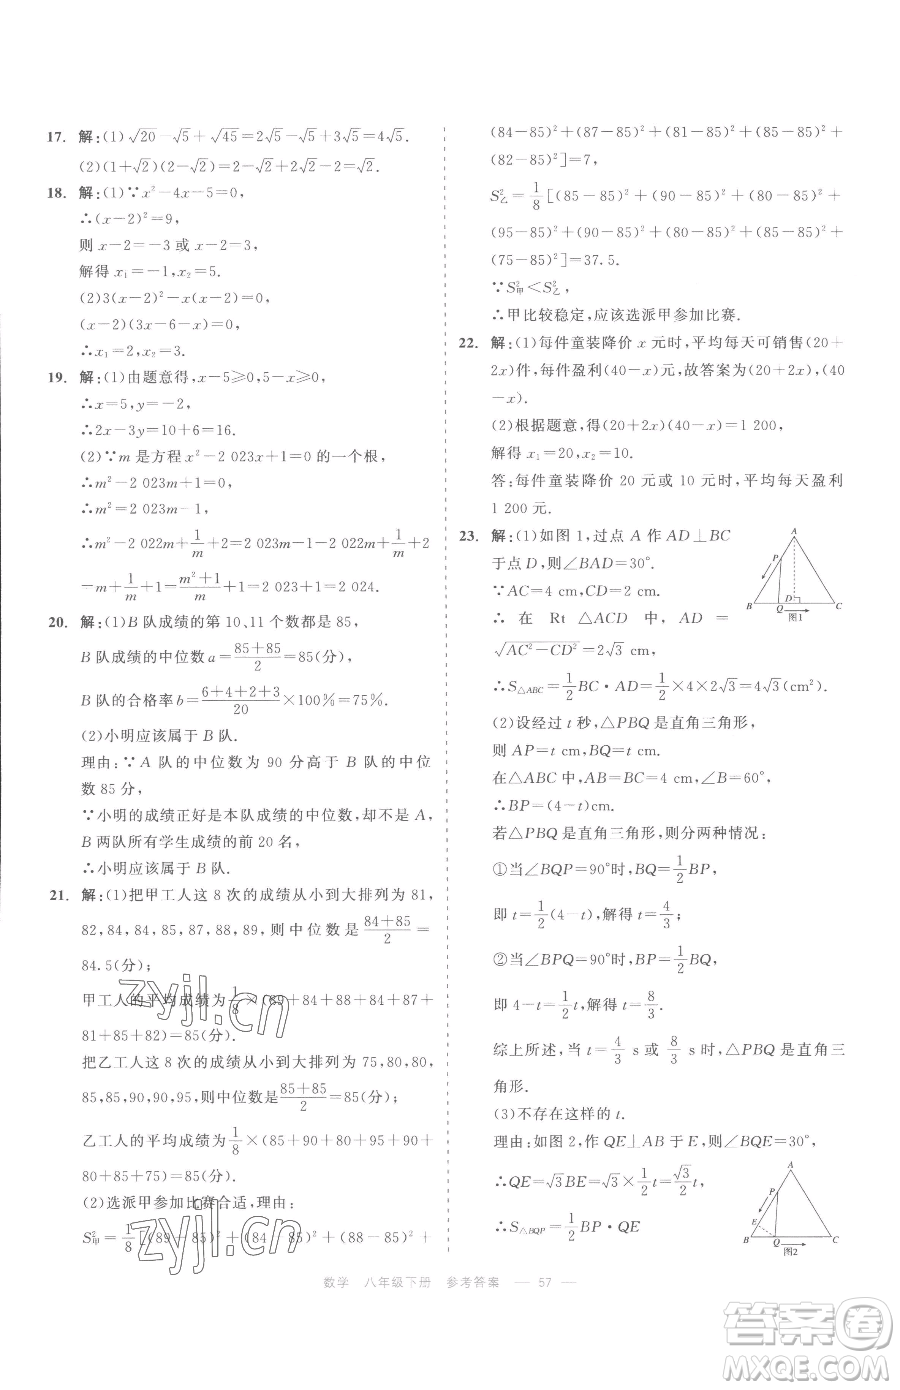 17. 解:(1)√20－√5＋√45＝2√5－√5＋3√5＝4√5.
(2)(1＋√2)(2－√2)＝2－√2＋2√2－2＝√2.
18. 解:(1)∵x²－4x－5＝0,
∴(x－2)²＝9,
则 x－2＝－3 或 x－2＝3,
解得 x₁＝－1,x₂＝5.
(2)3(x－2)²－x(x－2)＝0,
(x－2)(3x－6－x)＝0,
∴x₁＝2,x₂＝3.
19. 解:(1)由题意得,x－5≥0,5－x≥0,
∴x＝5,y＝－2,
∴2x－3y＝10＋6＝16.
(2)∵m 是方程 x²－2 023x＋1＝0 的一个根,
∴m²－2 023m＋1＝0,
∴m²＝2 023m－1,
∴m²－2 022m＋1/m＋2＝2 023m－1－2 022m＋1/m＋2
＝m＋1/m＋1＝(m²＋1)/m＋1＝2 023＋1＝2 024.
20. 解:(1)B 队成绩的第 10,11 个数都是 85,
B 队成绩的中位数 a＝(85＋85)/2＝85(分),
B 队的合格率 b＝(6＋4＋2＋3)/20×100%＝75%.
(2)小明应该属于 B 队.
理由:∵A 队的中位数为 90 分高于 B 队的中位
数 85 分,
∵小明的成绩正好是本队成绩的中位数,却成为 A,
B 两队所有学生成绩的前 20 名,
∴小明应该属于 B 队.
21. 解:(1)把甲工人这 8 次的成绩从小到大排列为 81,
82,84,84,85,87,88,89,则中位数是(84＋85)/2＝
84.5(分);
甲工人的平均成绩为1/8×(89＋84＋88＋84＋87＋
81＋85＋82)＝85(分).
把乙工人这 8 次的成绩从小到大排列为 75,80,80,
85,85,90,90,95,则中位数是(85＋85)/2＝85(分);
乙工人的平均成绩为1/8×(85＋90＋80＋95＋90＋
80＋85＋75)＝85(分).
(2)选派甲参加比赛合适,理由:
S²甲＝1/8[(89－85)²＋(84－85)²＋(88－85)²＋
(84－85)²＋(87－85)²＋(81－85)²＋(85－85)²＋
(82－85)²]＝7,
S²乙＝1/8[(85－85)²＋(90－85)²＋(80－85)²＋
(95－85)²＋(90－85)²＋(80－85)²＋(85－85)²＋
(75－85)²]＝37.5.
∵S²甲＜S²乙,
∴甲比较稳定,应该选派甲参加比赛.
22. 解:(1)每件童装降价 x 元时,平均每天可销售(20＋
2x)件,每件盈利(40－x)元.故答案为(20＋2x),(40
－x).
(2)根据题意,得(20＋2x)(40－x)＝1 200,
解得 x₁＝20,x₂＝10.
答:每件童装降价 20 元或 10 元时,平均每天盈利
1 200 元.
23. 解:(1)如图 1,过点 A 作 AD⊥BC
于点 D,则∠BAD＝30°.
∵AC＝4 cm,CD＝2 cm,
∴在 Rt △ACD 中,AD＝
√(AC²－CD²)＝2√3(cm),
∴S△ABC＝1/2BC·AD＝1/2×4×2√3＝4√3(cm²).
A
P
B
Q
D
C
图1
(2)设经过 t 秒,△PBQ 是直角三角形,
则 AP＝t cm,BQ＝t cm,
在△ABC 中,AB＝BC＝4 cm,∠B＝60°,
∴BP＝(4－t)cm.
若△PBQ 是直角三角形,则分两种情况:
①当∠BQP＝90°时,BQ＝1/2BP,
即 t＝1/2(4－t),解得 t＝4/3;
②当∠BPQ＝90°时,BP＝1/2BQ,
即 4－t＝1/2t,解得 t＝8/3.
综上所述,当 t＝4/3 s 或 8/3 s 时,△PBQ 是直角三
角形.
(3)不存在这样的 t.
理由:如图 2,作 QE⊥AB 于 E,则∠BQE＝30°,
∴QE＝√3BE＝√3×1/2t＝√3/2t,
∴S△BQP＝1/2BP·QE
A
P
E
B
Q
C
图2
数学 八年级下册 参考答案 — 57 —
zyjl.cn
zyjl.cn
答案圈
MXQE.COM